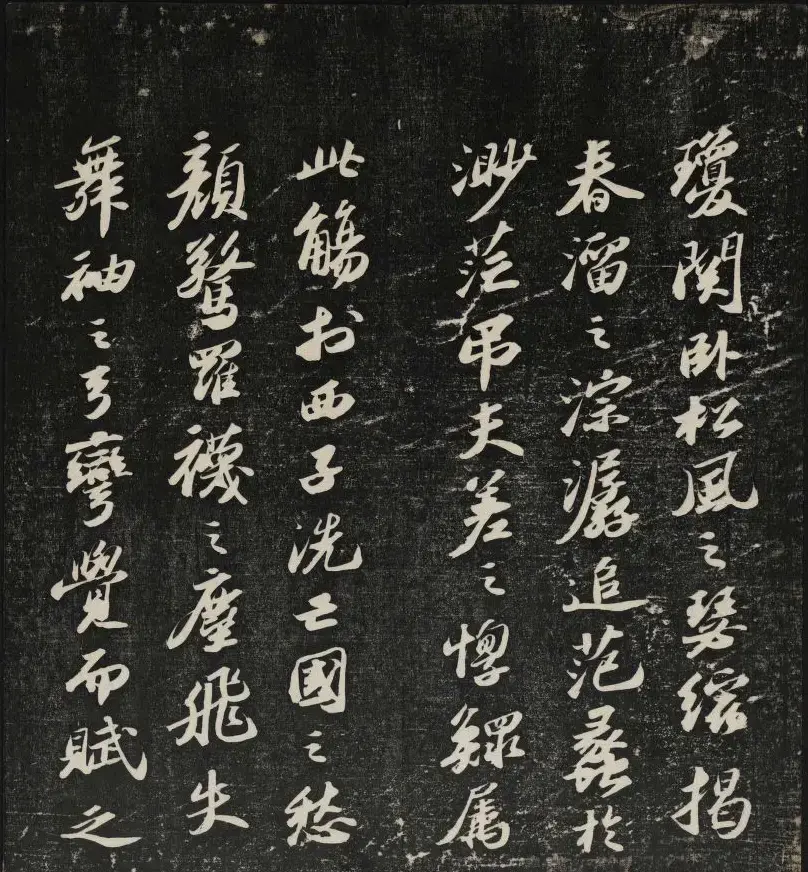 瓊関卧松風之瑟縮揭
春溜之淙潺追范蠡於
渺茫吊夫差之惸鰥属
此觴於西子洗亡國之愁
顏驚羅襪之塵飛失
舞袖之弓彎覺而賦之